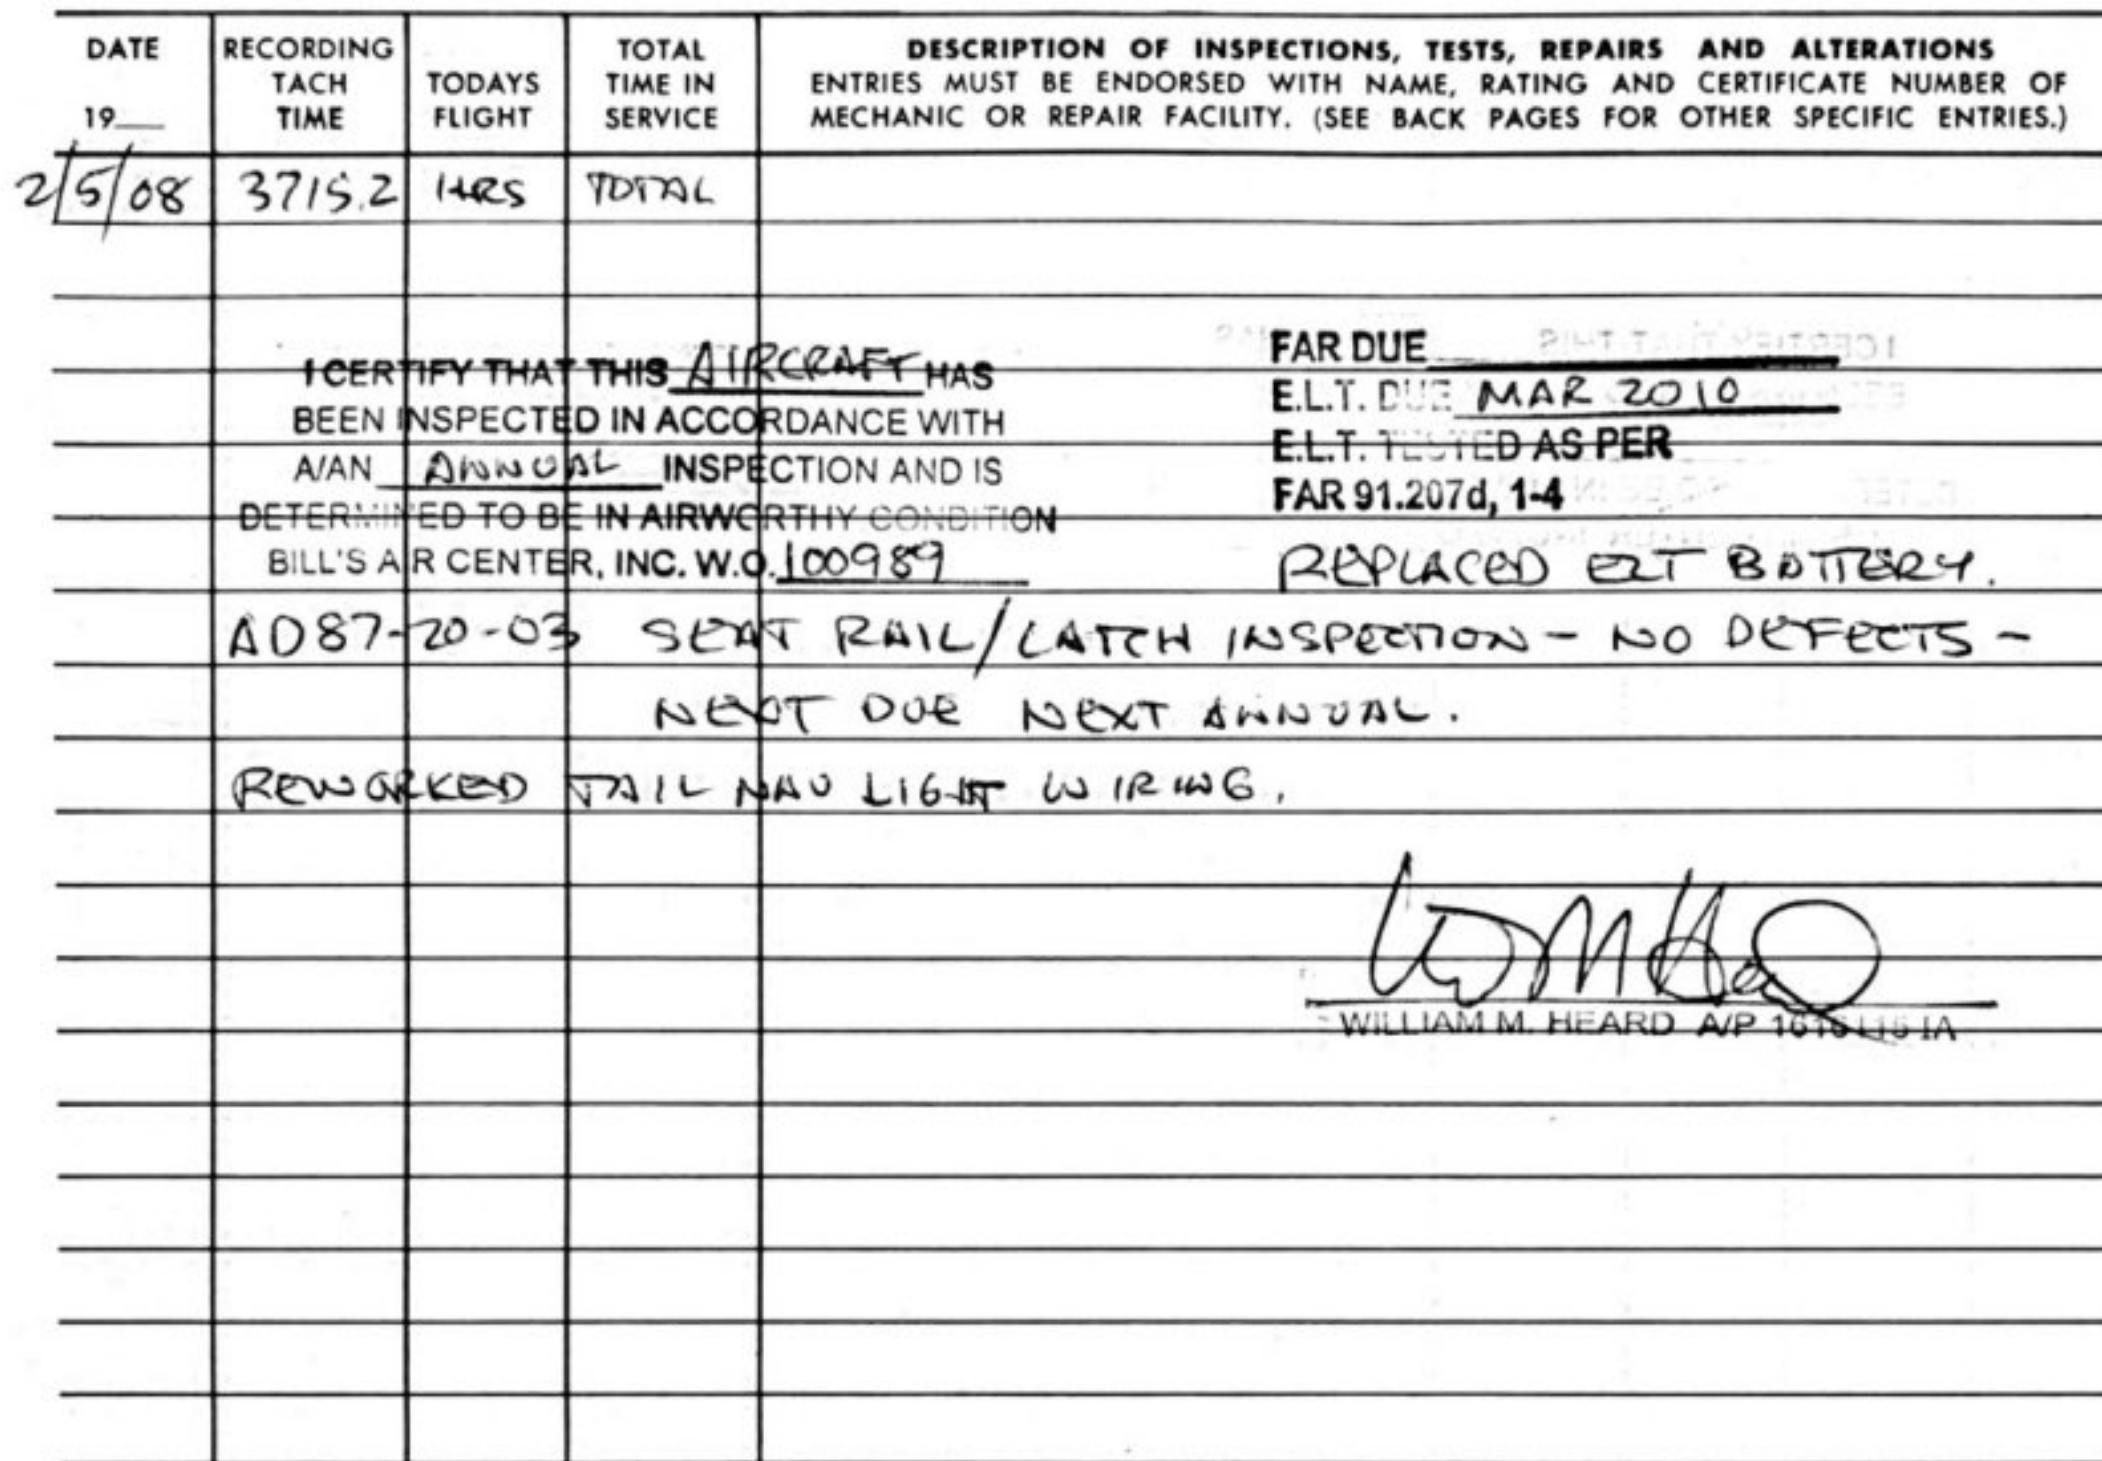 DATE RECORDING TACH TIME TODAYS FLIGHT TOTAL TIME IN SERVICE
19__
DESCRIPTION OF INSPECTIONS, TESTS, REPAIRS AND ALTERATIONS
ENTRIES MUST BE ENDORSED WITH NAME, RATING AND CERTIFICATE NUMBER OF
MECHANIC OR REPAIR FACILITY. (SEE BACK PAGES FOR OTHER SPECIFIC ENTRIES.)
2/5/08 3715.2 HRS TOTAL
I CERTIFY THAT THIS AIRCRAFT HAS
BEEN INSPECTED IN ACCORDANCE WITH
A/AN ANNUAL INSPECTION AND IS
DETERMINED TO BE IN AIRWORTHY CONDITION
BILL'S AIR CENTER, INC. W.O. 100989
FAR DUE
E.L.T. DUE MAR 2010
E.L.T. TESTED AS PER
FAR 91.207d, 1-4
REPLACED ELT BATTERY.
AD87-20-03 SEAT RAIL/LATCH INSPECTION - NO DEFECTS -
NEXT DUE NEXT ANNUAL.
REWORKED TAIL NAV LIGHT WIRING.
WILLIAM M. HEARD A/P IA